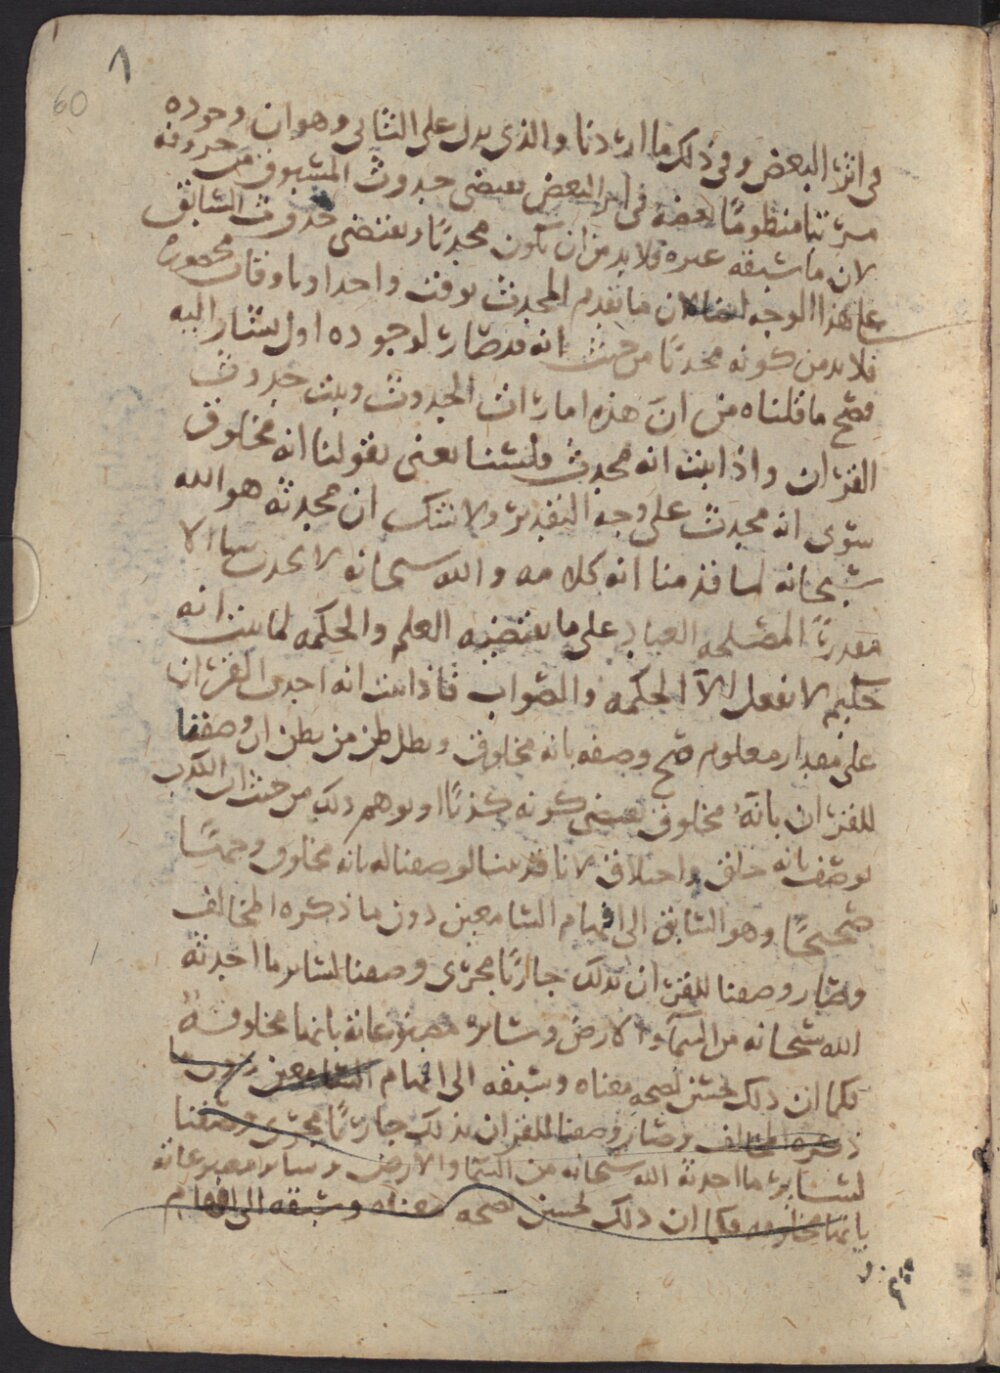 ٨
60
في اثر البعض وفي ذلك ما اردنا والذي يدل على الثاني وهو ان وجوده
مرتبا منظوما بعضه في اثر البعض يقتضي حدوث المسبوق من حروفه
لان ما سبقه غيره فلا بد من ان يكون محدثا ويقتضي حدوث السابق
على هذا الوجه ايضا لان ما تقدم المحدث بوقت واحد او باوقات محصورة
فلا بد من كونه محدثا من حيث انه قد صار لوجوده اول يشار اليه
فصح ما قلناه من ان هذه امارات الحدوث وثبت حدوث
القران واذا ثبت انه محدث فلسنا نعني بقولنا انه مخلوق
سوى انه محدث على وجه التقدير ولا شك ان محدثه هو الله
سبحانه لما قدمنا انه كلامه والله سبحانه لا يحدث شيا الا
مقدرا لمصلحه العباد على ما يقتضيه العلم والحكمه لما ثبت انه
حكيم لا يفعل الا الحكمه والصواب فاذا ثبت انه احدث القران
على مقدار معلوم صح وصفه بانه مخلوق وبطل ظن من يظن ان وصفنا
للقران بانه مخلوق يقتضي كونه كذبا او يوهم ذلك من حيث ان الكذب
يوصف بانه خلق واختلاق لانا قد بينا لوصفنا له بانه مخلوق وجها
صحيحا وهو السابق الى افهام السامعين دون ما ذكره المخالف
وصار وصفنا للقران بذلك جاريا مجرى وصفنا لسائر ما احدثه
الله سبحانه من السماء والارض وسائر مصنوعاته بانها مخلوقة
فكما ان ذلك يحسن لصحه معناه وسبقه الى افهام السامعين دون ما
ذكره المخالف وصار وصفنا للقران بذلك جاريا مجرى وصفنا
لسائر ما احدثه الله سبحانه من السما والارض وسائر مصنوعاته
بانها مخلوقه فكما ان ذلك يحسن لصحه معناه وسبقه الى افهام